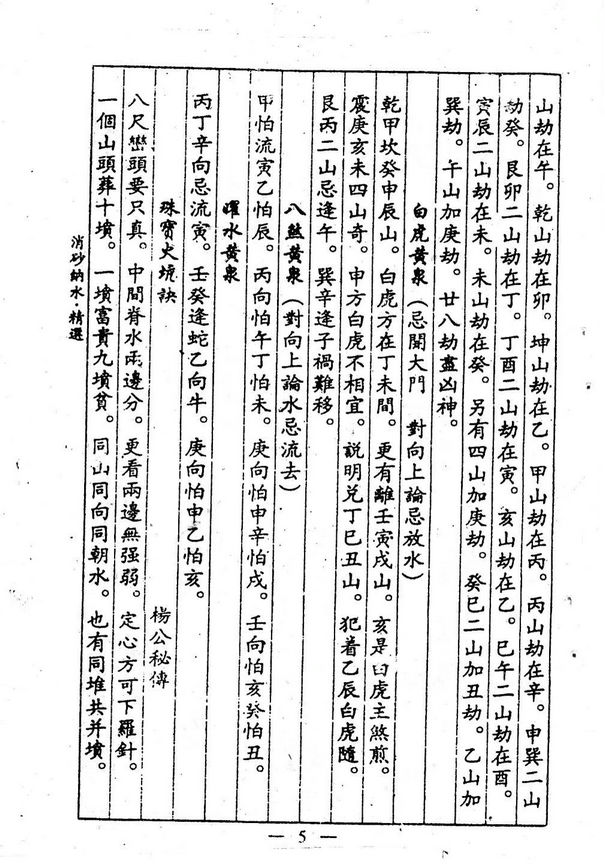 山劫在午。乾山劫在卯。坤山劫在乙。甲山劫在丙。丙山劫在辛。申巽二山
劫癸。艮卯二山劫在丁。丁酉二山劫在寅。亥山劫在乙。巳午二山劫在酉。
寅辰二山劫在未。未山劫在癸。另有四山加庚劫。癸巳二山加丑劫。乙山加
巽劫。午山加庚劫。廿八劫盡凶神。
白虎黃泉（忌開大門 對向上論忌放水）
乾甲坎癸申辰山。白虎方在丁未間。更有離壬寅戌山。亥是白虎主煞煎。
震庚亥未四山奇。申方白虎不相宜。説明兑丁巳丑山。犯着乙辰白虎隨。
艮丙二山忌逢午。巽辛逢子禍難移。
八煞黃泉（對向上論水忌流去）
甲怕流寅乙怕辰。丙向怕午丁怕未。庚向怕申辛怕戌。壬向怕亥癸怕丑。
曜水黃泉
丙丁辛向忌流寅。壬癸逢蛇乙向牛。庚向怕申乙怕亥。
珠寶火坑訣
楊公秘傳
八尺巒頭要只真。中間脊水兩邊分。更看兩邊無强弱。定心方可下羅針。
一個山頭葬十墳。一墳富貴九墳貧。同山同向同朝水。也有同堆共并墳。
消砂納水·精選
— 5 —